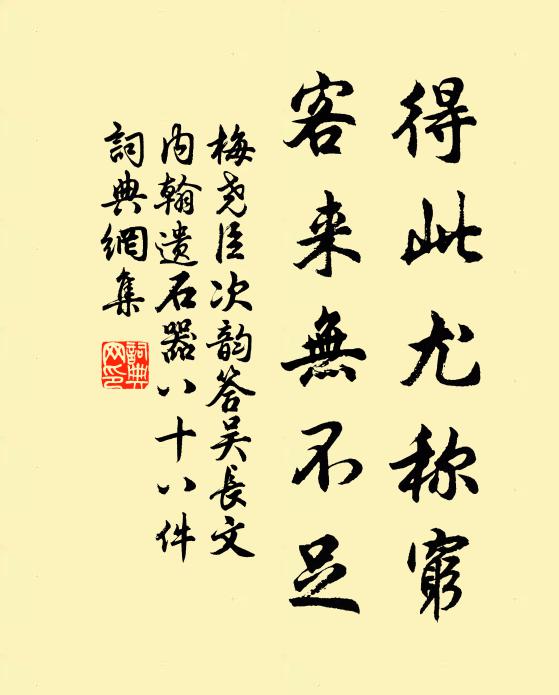 得此尤称窮
客来無不足
梅尧臣次韵答吴長文
内翰遗石器八十八件
詞典網集
詞典网印